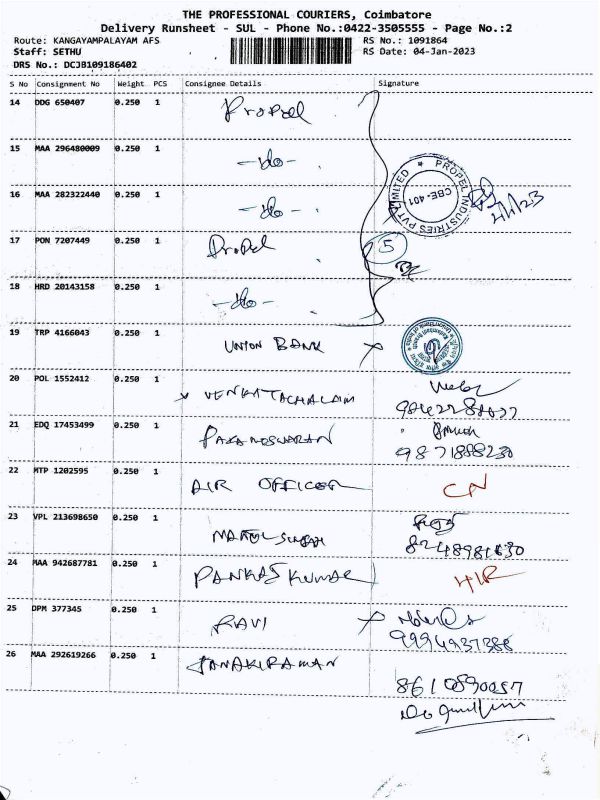 THE PROFESSIONAL COURIERS, Coimbatore
Delivery Runsheet - SUL - Phone No.:0422-3505555 - Page No.:2
Route: KANGAYAMPALAYAM AFS RS No.: 1091864
Staff: SETHU RS Date: 04-Jan-2023
DRS No.: DCJB109186402
S No Consignment No Weight PCS Consignee Details Signature
14 DDG 650407 0.250 1 Propel
15 MAA 296480009 0.250 1 -do-
16 MAA 282322440 0.250 1 -do-
PROPEL INDUSTRIES PVT LIMITED ★
CBE-401
4/1/23
17 PON 7207449 0.250 1 Propel 5
18 HRD 20143158 0.250 1 -do-
19 TRP 4166043 0.250 1 UNION BANK
20 POL 1552412 0.250 1 VENKATACHALAM
21 EDQ 17453499 0.250 1 9871888230
22 MTP 1202595 0.250 1 AIR OFFICER CN
23 VPL 213698650 0.250 1
24 MAA 942687781 0.250 1 PANKAJ KUMAR
25 DPM 377345 0.250 1 RAVI
9994937388
26 MAA 292619266 0.250 1 JANAKIRAMAN